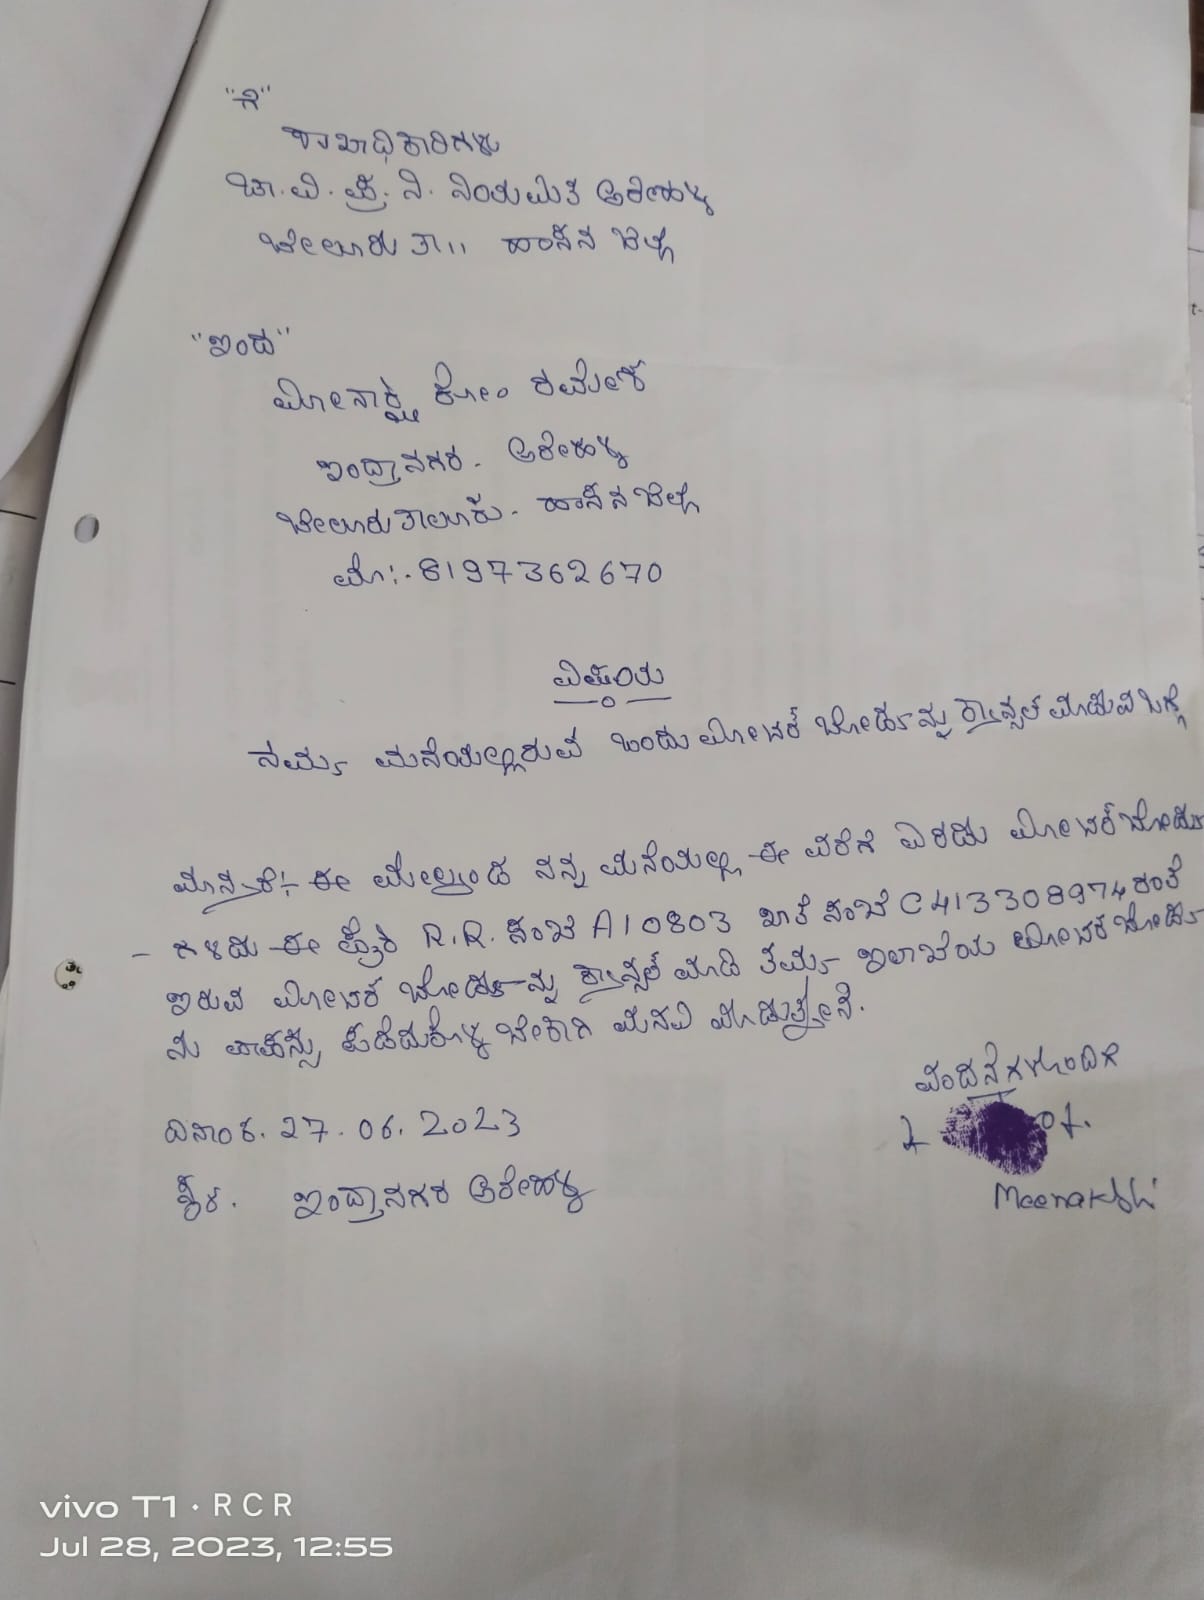 "ಗೆ"
ಶಾಖಾಧಿಕಾರಿಗಳು
ಚಾ. ವಿ. ಪ್ರ. ನಿ. ನಿಯಮಿತ ಅರೇಹಳ್ಳಿ
ಬೇಲೂರು ತಾ।। ಹಾಸನ ಜಿಲ್ಲೆ
"ಇಂದ"
ಮೀನಾಕ್ಷಿ ಕೋಂ ರಮೇಶ
ಇಂದ್ರಾನಗರ. ಅರೇಹಳ್ಳಿ
ಬೇಲೂರು ತಾಲೂಕು. ಹಾಸನ ಜಿಲ್ಲೆ
ಮೊ:- 8197362670
ವಿಷಯ
ನಮ್ಮ ಮನೆಯಲ್ಲಿರುವ ಒಂದು ಮೀಟರ್ ಬೋರ್ಡನ್ನು ಕ್ಯಾನ್ಸಲ್ ಮಾಡುವ ಬಗ್ಗೆ
ಮಾನ್ಯರೆ:- ಈ ಮೇಲ್ಕಂಡ ನನ್ನ ಮನೆಯಲ್ಲಿ ಈ ವರೆಗೆ ಎರಡು ಮೀಟರ್ ಬೋರ್ಡು
- ಗಳಿದ್ದು ಈ ಪೈಕಿ R.R. ಸಂಖ್ಯೆ A10803 ಖಾತೆ ಸಂಖ್ಯೆ C413308974 ರಂತೆ
ಇರುವ ಮೀಟರ್ ಬೋರ್ಡನ್ನು ಕ್ಯಾನ್ಸಲ್ ಮಾಡಿ ತಮ್ಮ ಇಲಾಖೆಯ ಮೀಟರ್ ಬೋರ್ಡ
ನ್ನು ವಾಪಸ್ಸು ಪಡೆದುಕೊಳ್ಳಬೇಕಾಗಿ ಮನವಿ ಮಾಡುತ್ತೇನೆ.
ವಂದನೆಗಳೊಂದಿಗೆ
ದಿನಾಂಕ. 27. 06. 2023
ಸ್ಥಳ. ಇಂದ್ರಾನಗರ ಅರೇಹಳ್ಳಿ
Meenakshi
vivo T1 · RCR
Jul 28, 2023, 12:55